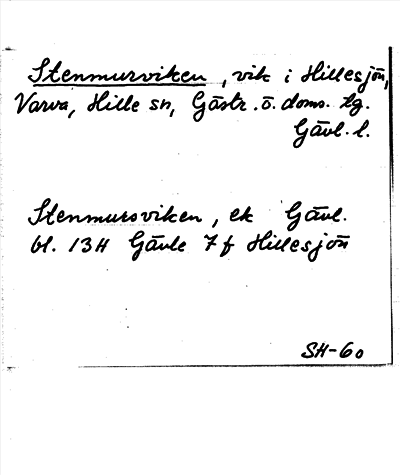 Stenmursviken, vik i Hillesjön,
Varva, Hille sn, Gästr. ö. doms. tg.
Gävl. l.
Stenmursviken, ek Gävl.
bl. 13H Gävle 7f Hillesjön
SH-60